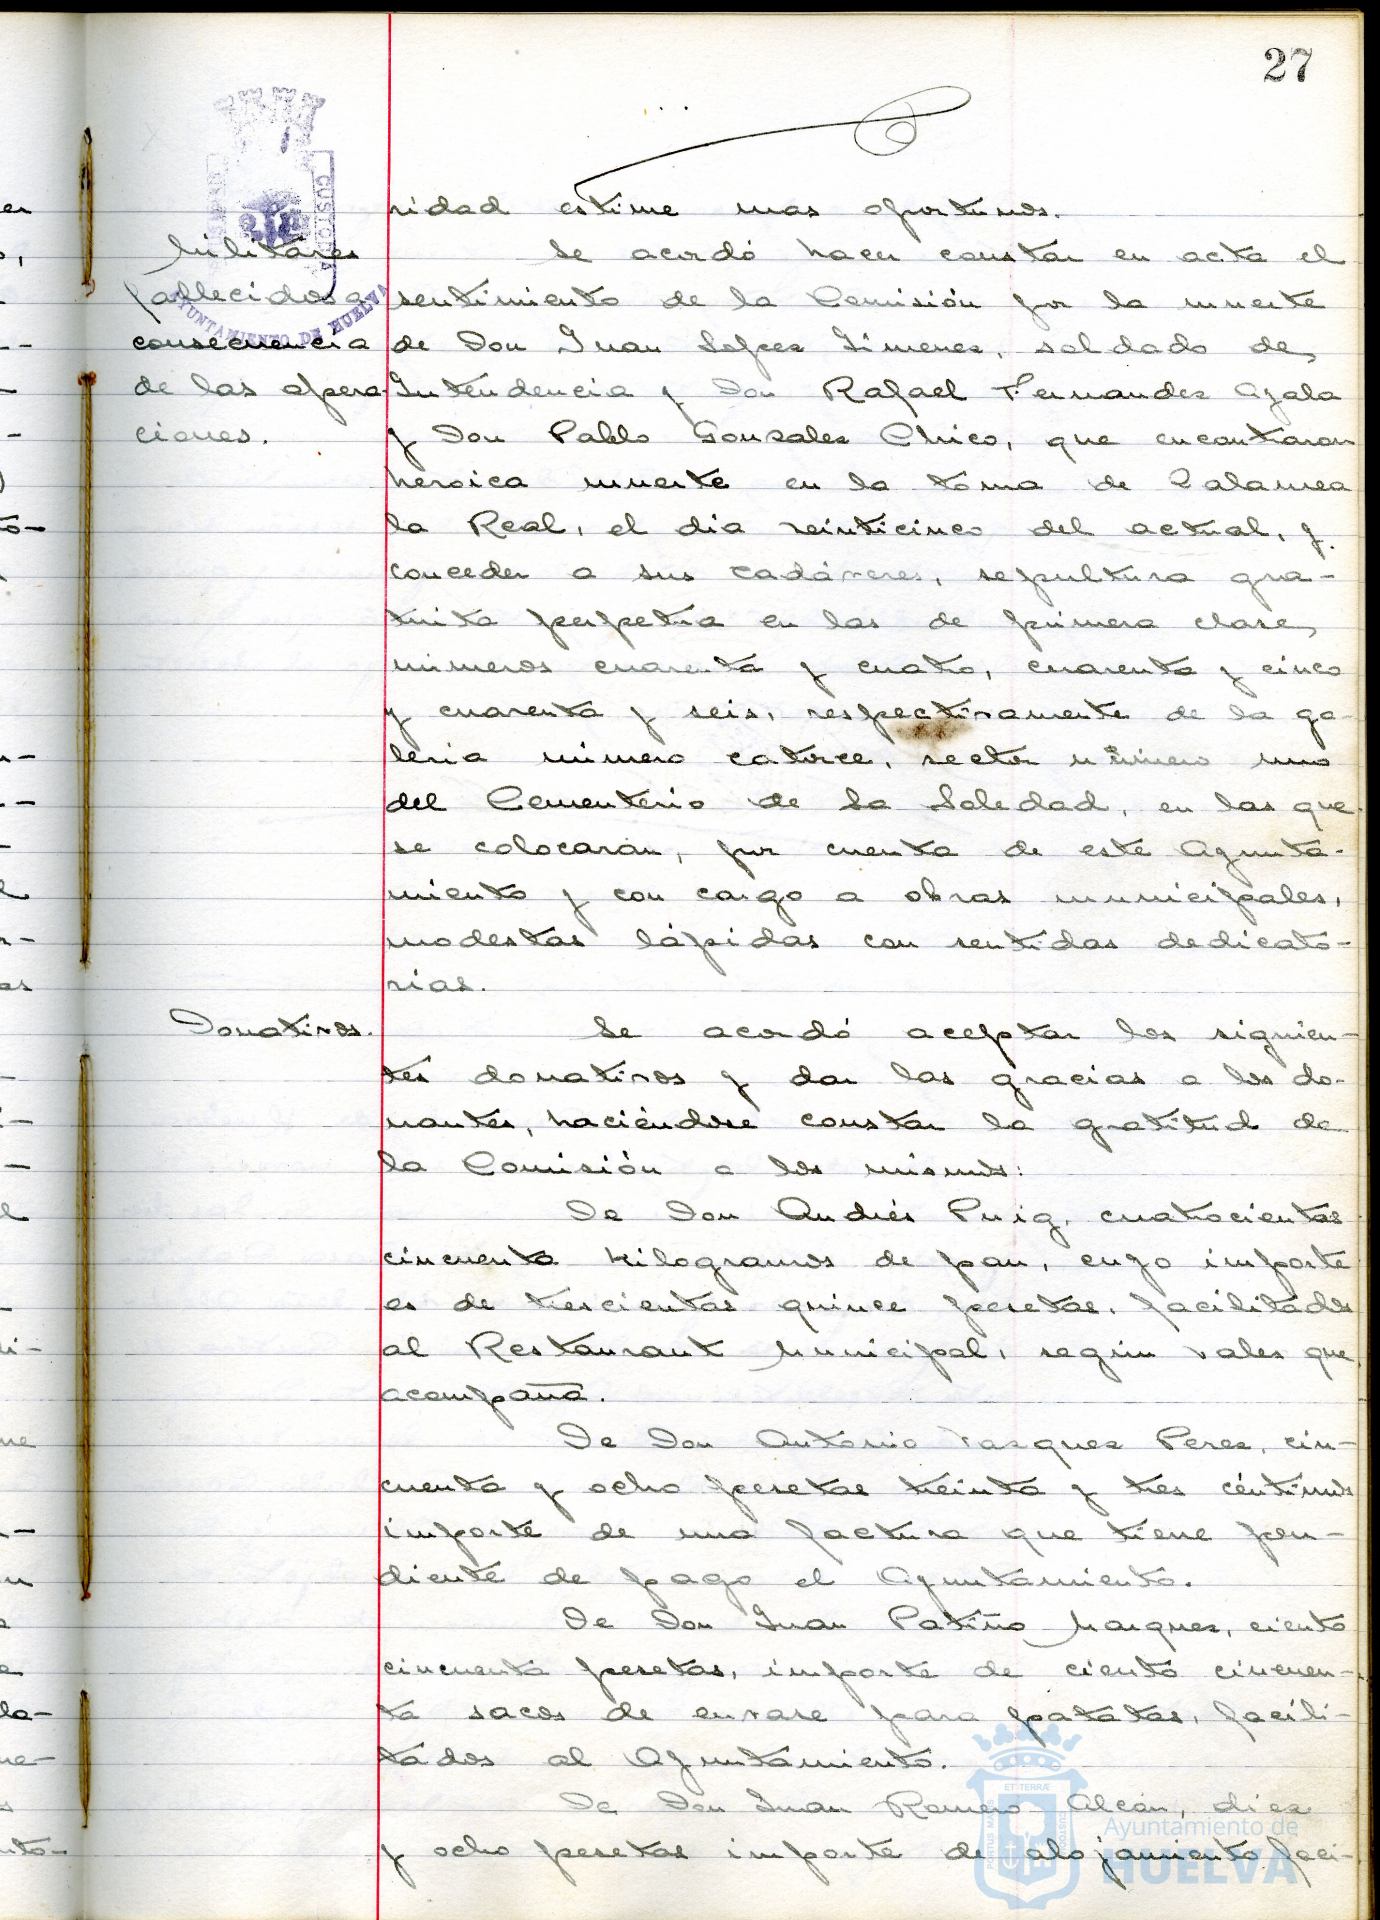 27
ridad estime mas oportunos.
Militares
fallecidos a
consecuencia
de las opera-
ciones.
Se acordó hacer constar en acta el
sentimiento de la Comisión por la muerte
de Don Juan Lopez Jimenez, soldado de
Intendencia y Don Rafael Fernandez Ayala
y Don Pablo Gonzalez Chico, que encontraron
heroica muerte en la toma de Zalamea
la Real, el dia veinticinco del actual, y
conceder a sus cadáveres, sepultura gra-
tuita perpetua en las de primera clase,
números cuarenta y cuatro, cuarenta y cinco
y cuarenta y seis, respectivamente de la ga-
leria número catorce, sector número uno
del Cementerio de La Soledad, en las que
se colocarán, por cuenta de este Ayunta-
miento y con cargo a obras municipales,
modestas lápidas con sentidas dedicato-
rias.
Donativos.
Se acordó aceptar los siguien-
tes donativos y dar las gracias a los do-
nantes, haciéndose constar la gratitud de
la Comisión a los mismos:
De Don Andrés Puig, cuatrocientas
cincuenta kilogramos de pan, cuyo importe
es de trescientas quince pesetas, facilitados
al Restaurant Municipal, según vales que
acompaña.
De Don Antonio Vazquez Perez, cin-
cuenta y ocho pesetas treinta y tres céntimos
importe de una factura que tiene pen-
diente de pago el Ayuntamiento.
De Don Juan Patiño Marquez, ciento
cincuenta pesetas, importe de ciento cincuen-
ta sacos de envase para patatas, facili-
tados al Ayuntamiento.
De Don Juan Romero Alcón, diez
y ocho pesetas importe de alojamiento faci-
AYUNTAMIENTO DE HUELVA
CUSTODIA
PORTUS MARIS
ET TERRÆ
CUSTODIA
Ayuntamiento de
HUELVA